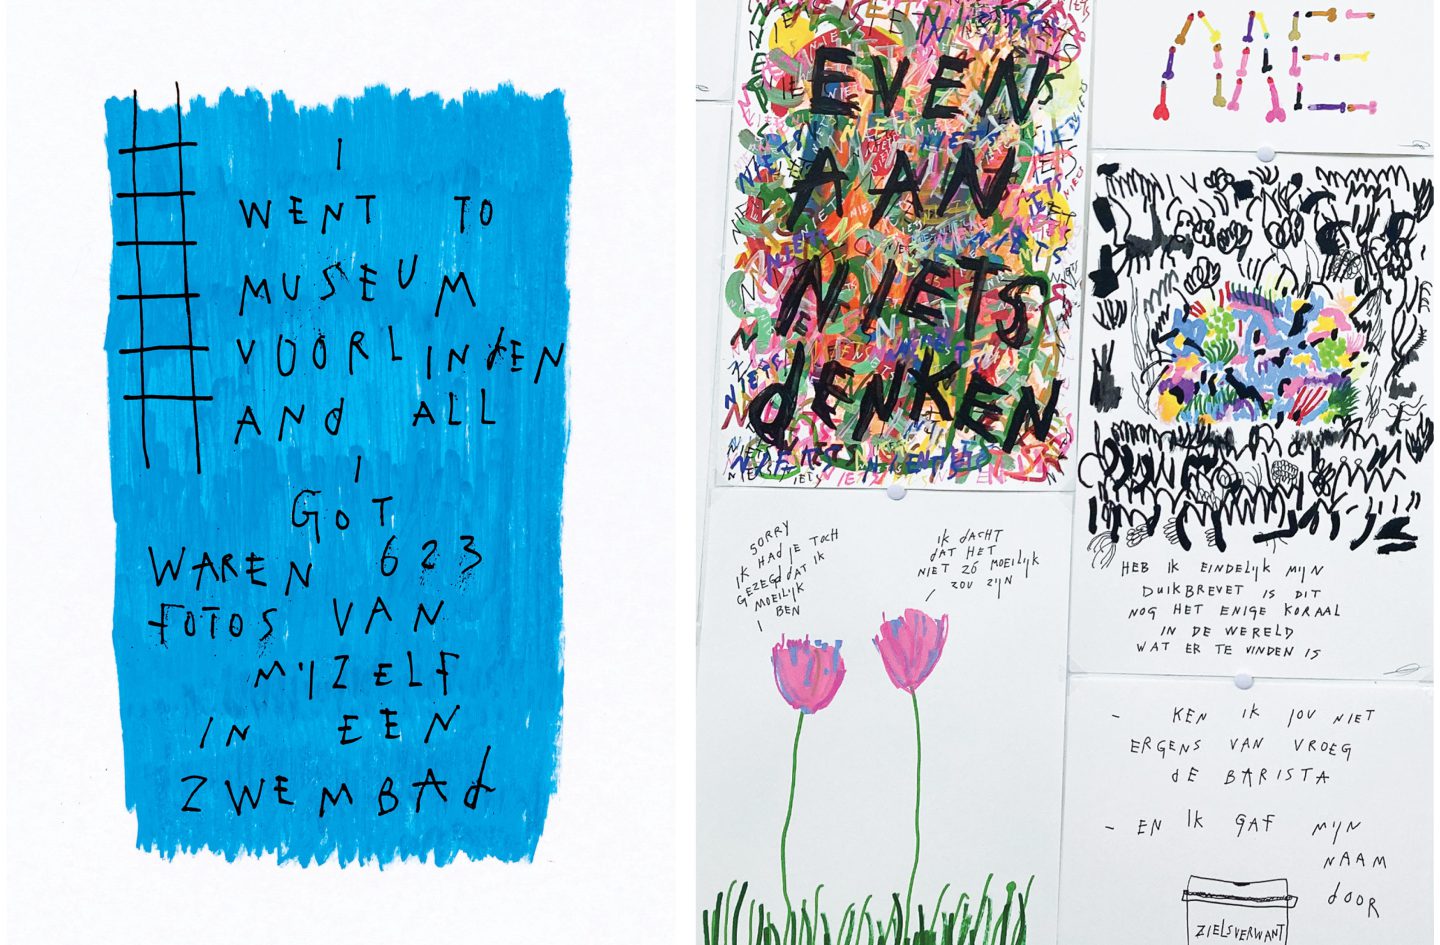 I
WENT TO
MUSEUM
VOORLINDEN
AND ALL
I
GOT
WAREN 623
FOTOS VAN
MIJZELF
IN EEN
ZWEMBAD
EVEN
AAN
NIETS
DENKEN
ME
SORRY
IK HAD JE TOCH
GEZEGD DAT IK
MOEILIJK
BEN
IK DACHT
DAT HET
NIET ZÓ MOEILIJK
ZOU ZIJN
HEB IK EINDELIJK MIJN
DUIKBREVET IS DIT
NOG HET ENIGE KORAAL
IN DE WERELD
WAT ER TE VINDEN IS
- KEN IK JOU NIET
ERGENS VAN VROEG
DE BARISTA
- EN IK GAF MIJN
NAAM
DOOR
ZIELSVERWANT